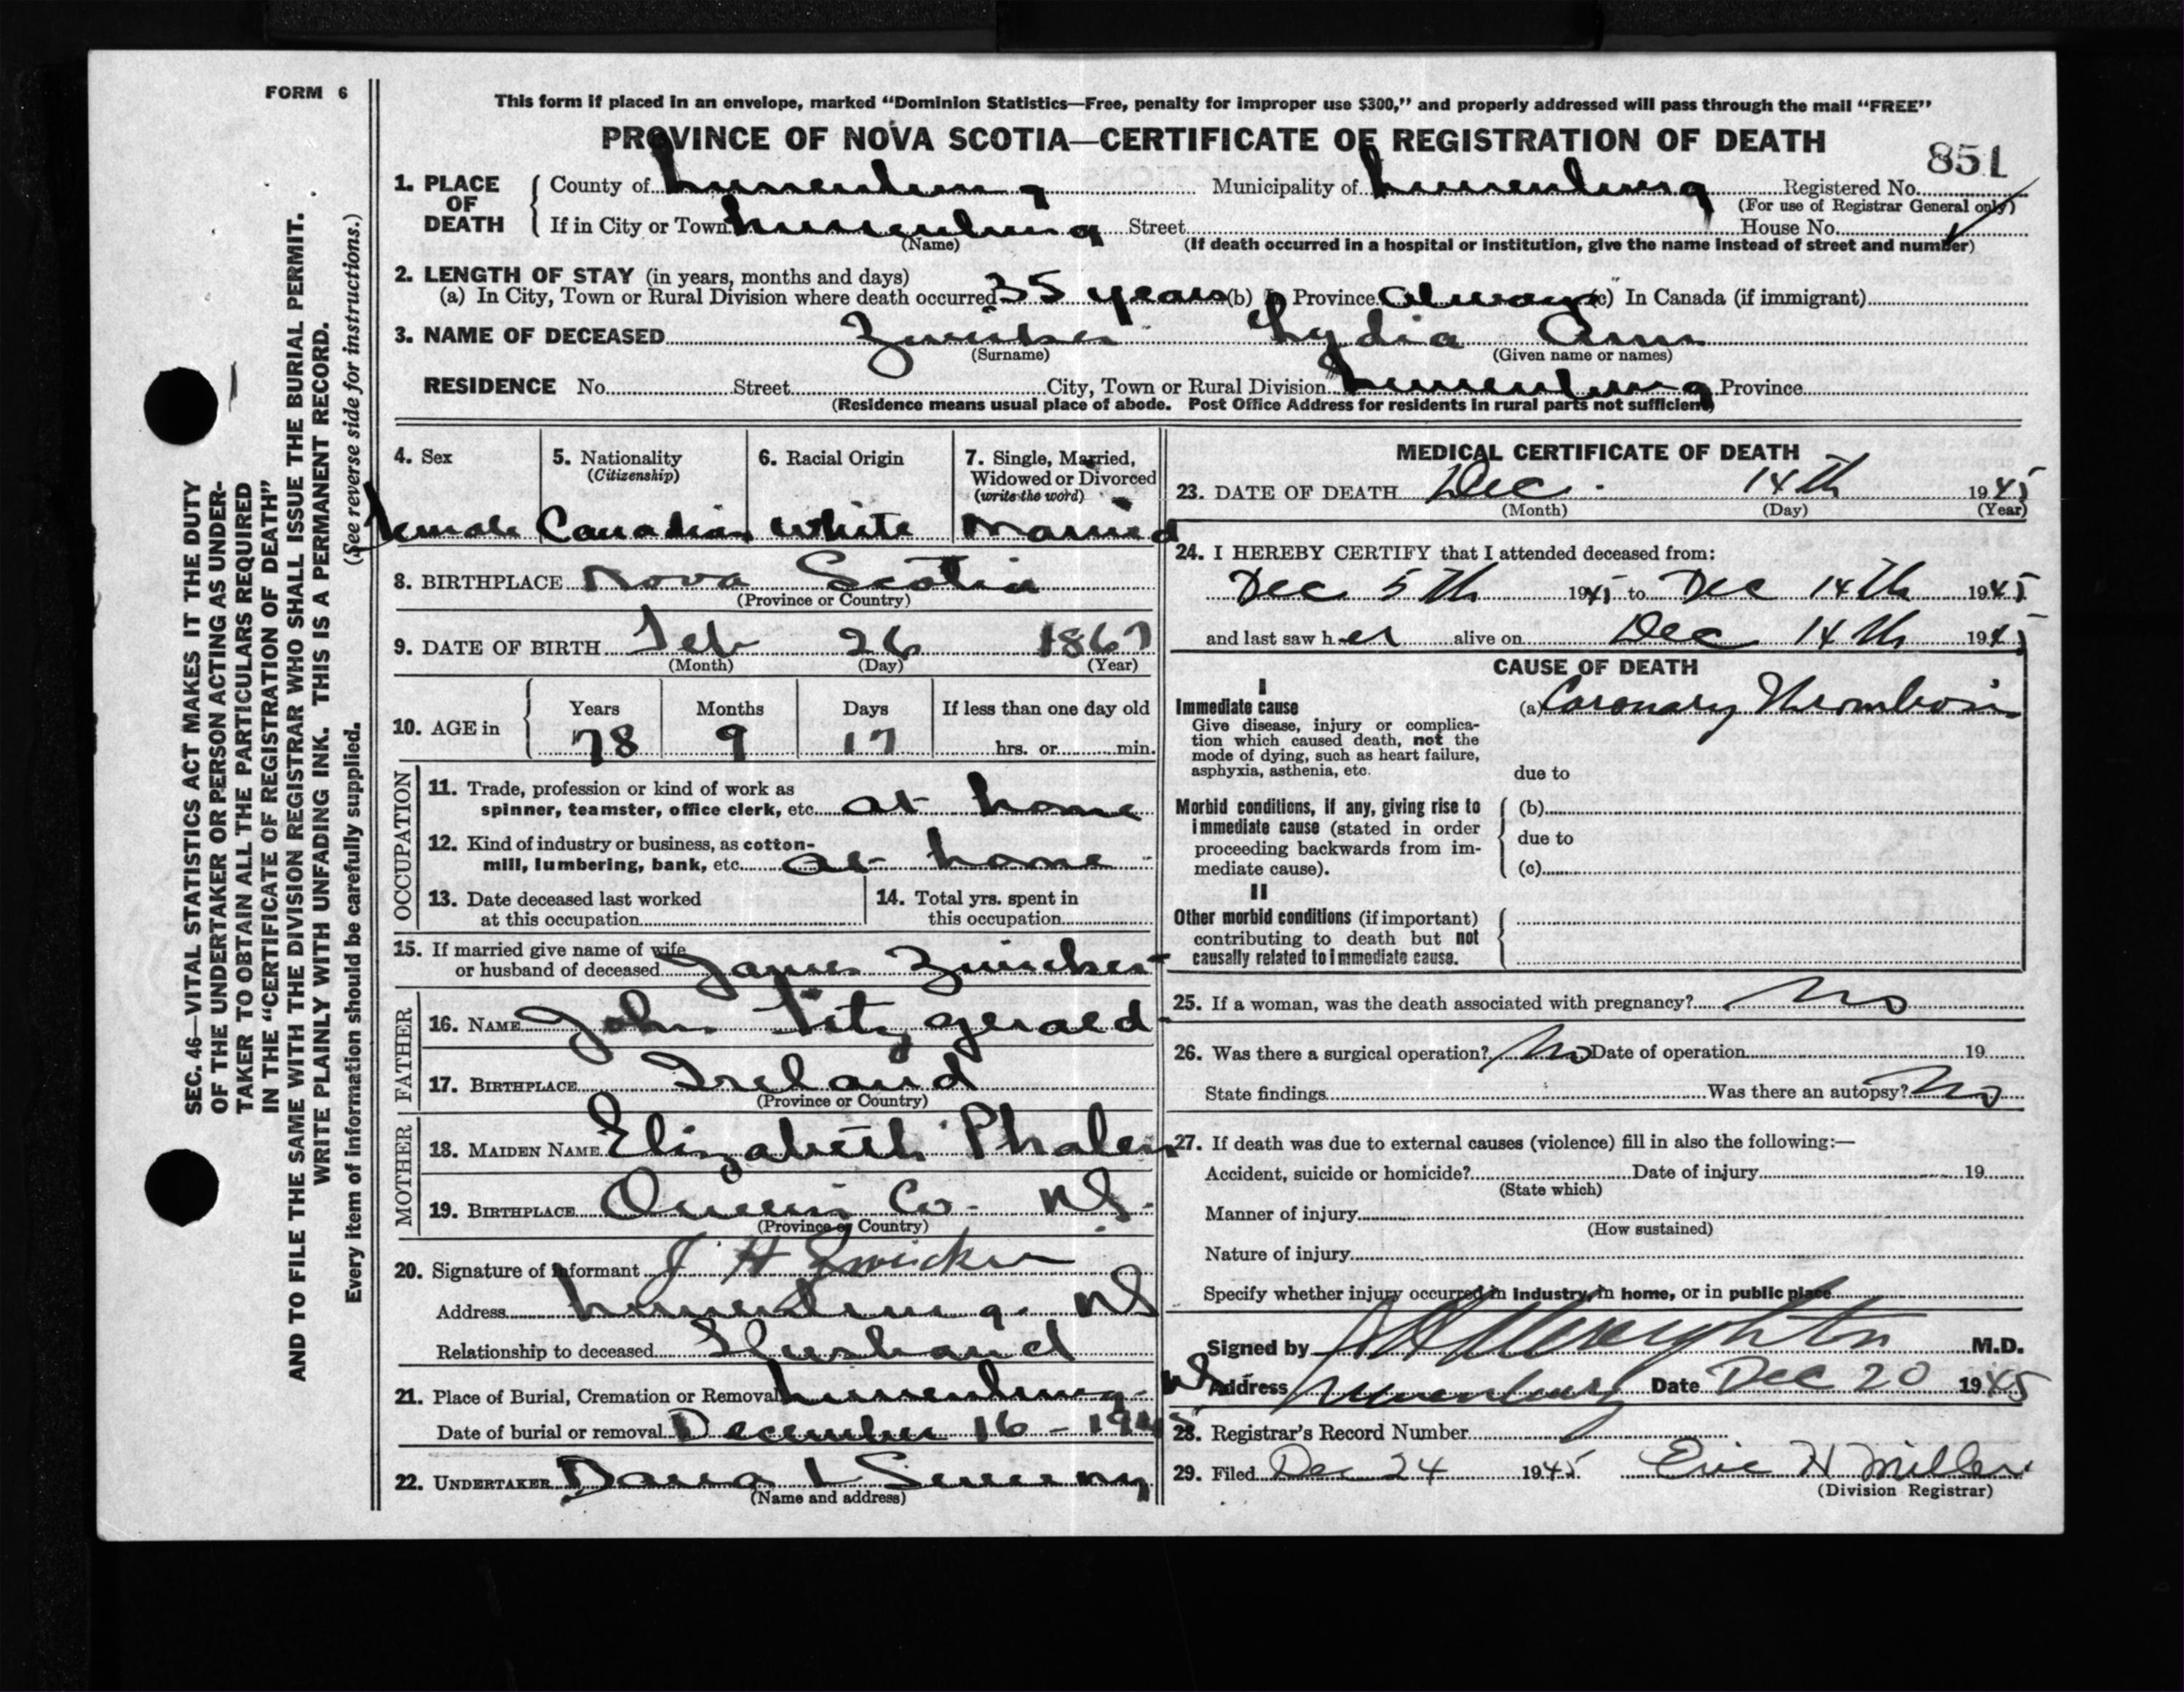 FORM 6
This form if placed in an envelope, marked “Dominion Statistics—Free, penalty for improper use $300,” and properly addressed will pass through the mail “FREE”
PROVINCE OF NOVA SCOTIA—CERTIFICATE OF REGISTRATION OF DEATH
851
1. PLACE OF DEATH County of Lunenburg Municipality of Lunenburg Registered No.
(For use of Registrar General only)
If in City or Town Lunenburg Street House No.
(Name) (If death occurred in a hospital or institution, give the name instead of street and number)
2. LENGTH OF STAY (in years, months and days)
(a) In City, Town or Rural Division where death occurred 35 years (b) In Province always (c) In Canada (if immigrant)
3. NAME OF DECEASED Zwicker Lydia Ann
(Surname) (Given name or names)
RESIDENCE No. Street City, Town or Rural Division Lunenburg Province
(Residence means usual place of abode. Post Office Address for residents in rural parts not sufficient)
4. Sex 5. Nationality 6. Racial Origin 7. Single, Married,
(Citizenship) Widowed or Divorced
(write the word)
Female Canadian White Married
8. BIRTHPLACE Nova Scotia
(Province or Country)
9. DATE OF BIRTH Feb 26 1867
(Month) (Day) (Year)
10. AGE in Years Months Days If less than one day old
78 9 17 hrs. or min.
OCCUPATION
11. Trade, profession or kind of work as
spinner, teamster, office clerk, etc. at home
12. Kind of industry or business, as cotton-
mill, lumbering, bank, etc. at home
13. Date deceased last worked
at this occupation
14. Total yrs. spent in
this occupation
15. If married give name of wife
or husband of deceased James Zwicker
FATHER
16. NAME John Fitzgerald
17. BIRTHPLACE Ireland
(Province or Country)
MOTHER
18. MAIDEN NAME Elizabeth Phalen
19. BIRTHPLACE Queens Co. NS.
(Province or Country)
20. Signature of Informant J H Zwicker
Address Lunenburg. NS
Relationship to deceased Husband
21. Place of Burial, Cremation or Removal Lunenburg. NS
Date of burial or removal December 16 - 1945
22. UNDERTAKER
(Name and address)
MEDICAL CERTIFICATE OF DEATH
23. DATE OF DEATH Dec. 14th 1945
(Month) (Day) (Year)
24. I HEREBY CERTIFY that I attended deceased from:
Dec 5th 1945 to Dec 14th 1945
and last saw her alive on Dec 14th 1945
CAUSE OF DEATH
I
Immediate cause (a) Coronary Thrombosis
Give disease, injury or complica-
tion which caused death, not the
mode of dying, such as heart failure,
asphyxia, asthenia, etc.
due to
Morbid conditions, if any, giving rise to (b)
immediate cause (stated in order due to
proceeding backwards from im-
mediate cause). (c)
II
Other morbid conditions (if important)
contributing to death but not
causally related to immediate cause.
25. If a woman, was the death associated with pregnancy? No
26. Was there a surgical operation? No Date of operation 19
State findings Was there an autopsy? No
27. If death was due to external causes (violence) fill in also the following:—
Accident, suicide or homicide? Date of injury 19
(State which)
Manner of injury
(How sustained)
Nature of injury
Specify whether injury occurred in industry, in home, or in public place
Signed by M.D.
Address Lunenburg Date Dec 20 1945
28. Registrar's Record Number
29. Filed Dec 24 1945 Eric H Miller
(Division Registrar)
SEC. 46—VITAL STATISTICS ACT MAKES IT THE DUTY
OF THE UNDERTAKER OR PERSON ACTING AS UNDER-
TAKER TO OBTAIN ALL THE PARTICULARS REQUIRED
IN THE “CERTIFICATE OF REGISTRATION OF DEATH”
AND TO FILE THE SAME WITH THE DIVISION REGISTRAR WHO SHALL ISSUE THE BURIAL PERMIT.
WRITE PLAINLY WITH UNFADING INK. THIS IS A PERMANENT RECORD.
Every item of information should be carefully supplied. (See reverse side for instructions.)